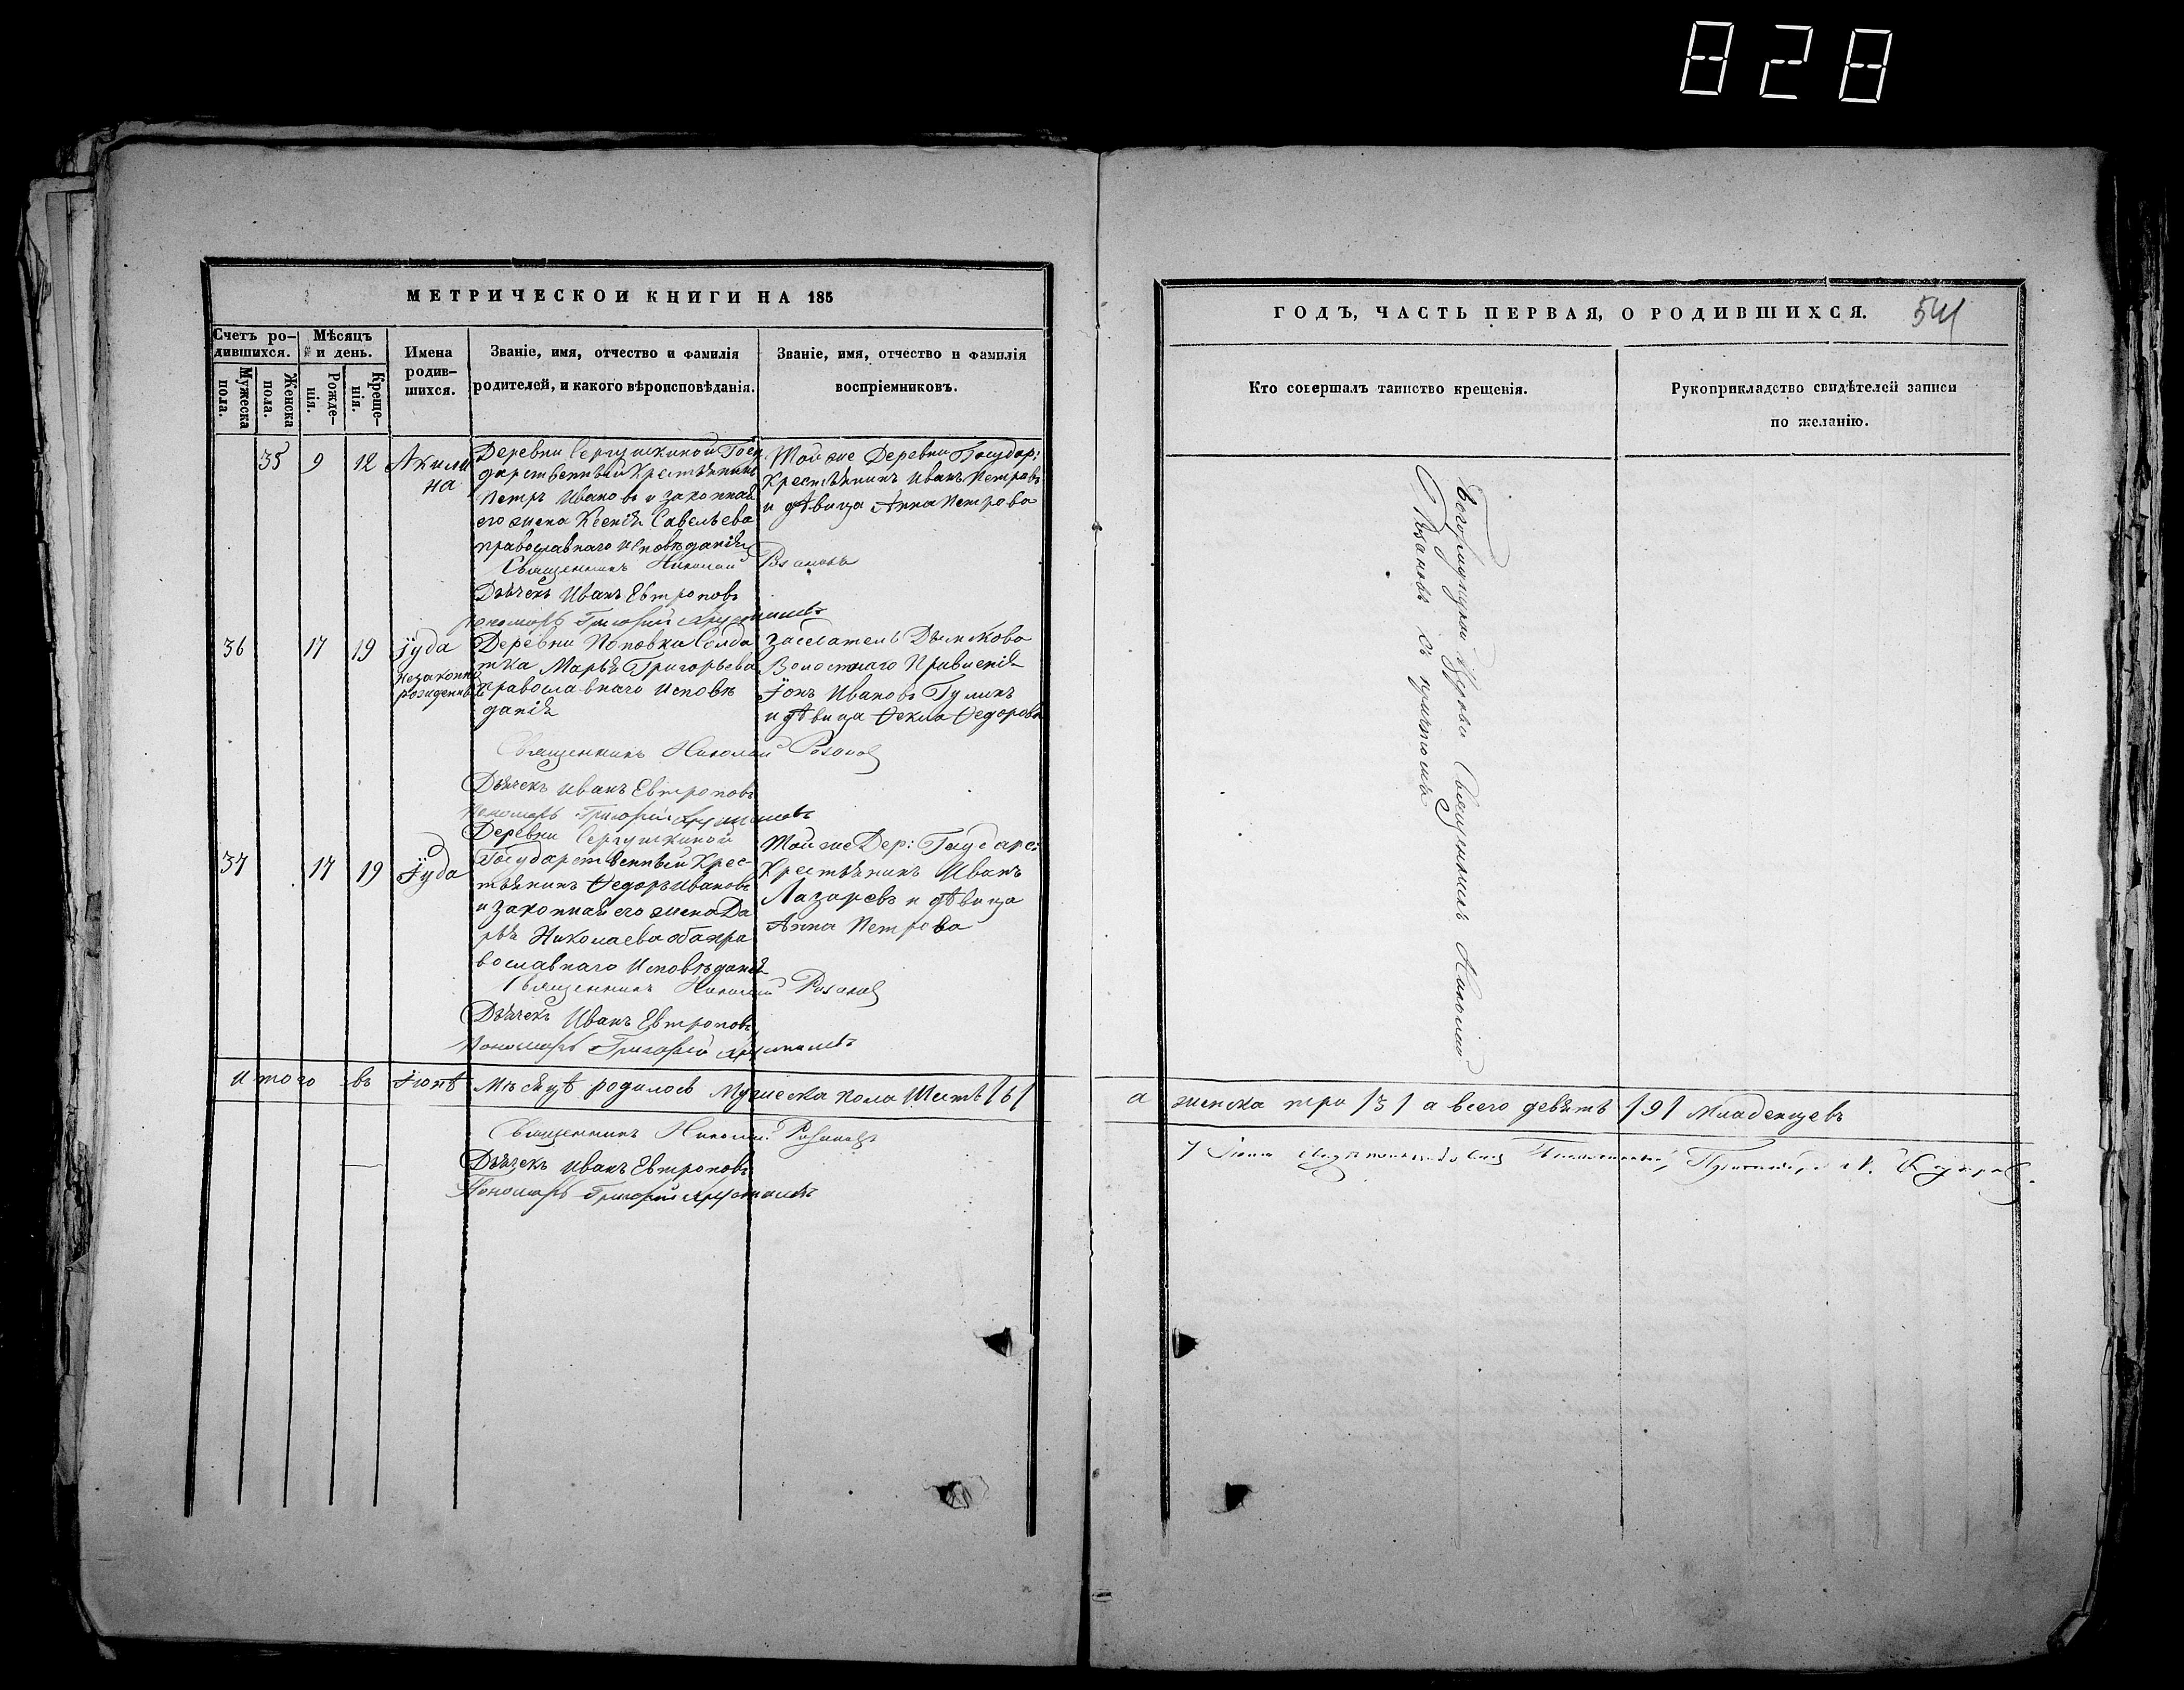 828
МЕТРИЧЕСКОИ КНИГИ НА 185
Счетъ ро-
дившихся.
Мѣсяцъ
и день.
Мужеска
пола.
Женска
пола.
Рожде-
нія.
Креще-
нія.
Имена
родив-
шихся.
Званіе, имя, отчество и фамилія
родителей, и какого вѣроисповѣданія.
Званіе, имя, отчество и фамилія
воспріемниковъ.
35 9 12
Акили
на
Деревни Сергушкиной Госу
дарственный Крестьянинъ
Петръ Ивановъ и законная
его жена Ксенія Савельева
православнаго исповѣданія
Той же Деревни Государ:
Крестьянинъ Иванъ Петровъ
и дѣвица Анна Петрова
Священникъ Николай Розановъ
Дьячекъ Иванъ Евтроповъ
Пономарь Григорій
36 17 19
Іуда
незаконно
рожденный
Деревни Поповки Солда
тка Марья Григорьева
православнаго исповѣ
данія
Заседатель Дымкова
Волостнаго Правленія
Іонъ Ивановъ Гулинъ
и дѣвица Ѳекла Ѳедорова
Священникъ Николай Розановъ
Дьячекъ Иванъ Евтроповъ
Пономарь Григорій
37 17 19
Іуда
Деревни Сергушкиной
Государственный Крес-
тьянинъ Ѳедоръ Ивановъ
и законная его жена Да
рья Николаева оба пра
вославнаго исповѣданія
Той же Дер: Государс:
Крестьянинъ Иванъ
Лазаревъ и дѣвица
Анна Петрова
Священникъ Николай Розановъ
Дьячекъ Иванъ Евтроповъ
Пономарь Григорій
Итого въ Іюнѣ мѣсяцѣ родилось мужеска пола шесть /6/
Священникъ Николай Розановъ
Дьячекъ Иванъ Евтроповъ
Пономарь Григорій
ГОДЪ, ЧАСТЬ ПЕРВАЯ, О РОДИВШИХСЯ.
541
Кто совершалъ таинство крещенія.
Рукоприкладство свидѣтелей записи
по желанію.
Богородицкой Церкви Священникъ Николай
Розановъ съ причтомъ
а женска три /3/ а всего девять /9/ младенцевъ